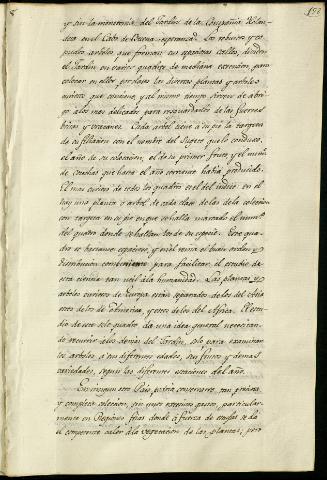 158
y sin la monotonia del Jardin de la Compañia Holan-
desa en el Cabo de Buena-esperanza. Los robustos y co-
pudos arboles que forman sus espaciosas calles, dividen
el Jardin en varios quadros de mediana extencion, para
colocar en ellos por clases las diversas plantas y arboles
curiosos que contiene, y al mismo tiempo sirven de abri-
go a los mas delicados para resguardarlos de las fuertes
brisas y uracanes. Cada arbol tiene a su pie la targeta
de su filiacion con el nombre del Sugeto que lo conduxo,
el año de su colocacion, el de su primer fruto, y el num.
de Cosechas que hasta el año corriente habia producido.
El mas curioso de todos los quadros es el del indice: en el
hay una planta o arbol de cada clase de las de la coleccion
con targeta en su pie en que se halla marcado el num.
del quadro donde se hallan los de su especie. Este qua-
dro es bastante espacioso, y en el reina el buen orden y
distribucion conveniente para facilitar el estudio de
esta ciencia tan util á la humanidad. Las plantas y
arboles curiosos de Europa están separados de los del Asia
estos de los de l'America, y estos de los del Africa. El estu-
dio de este solo quadro da una idea general necesitan-
do recurrir a los demas del Jardin, solo para examinar
los arboles, a sus diferentes edades, sus frutos y demas
variedades, segun las diferentes estaciones del año.
En ningun otro Pais, podria conservarse, tan precios
y completa coleccion, sin unos extremos gastos, particular-
mente en Regiones frias donde á fuerza de estufas se da
el competente calor á la vegetacion de las plantas; pero